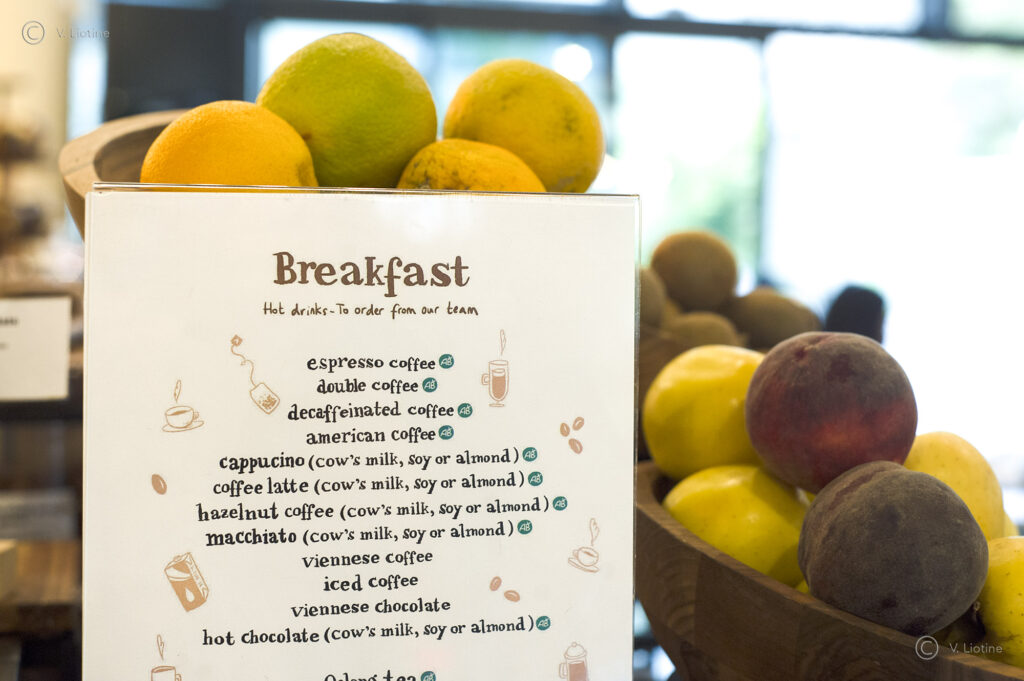 © V. Liotine
Breakfast
Hot drinks - To order from our team
espresso coffee AB
double coffee AB
decaffeinated coffee AB
american coffee AB
cappucino (cow's milk, soy or almond) AB
coffee latte (cow's milk, soy or almond) AB
hazelnut coffee (cow's milk, soy or almond) AB
macchiato (cow's milk, soy or almond) AB
viennese coffee
iced coffee
viennese chocolate
hot chocolate (cow's milk, soy or almond) AB
Oolong tea AB
© V. Liotine